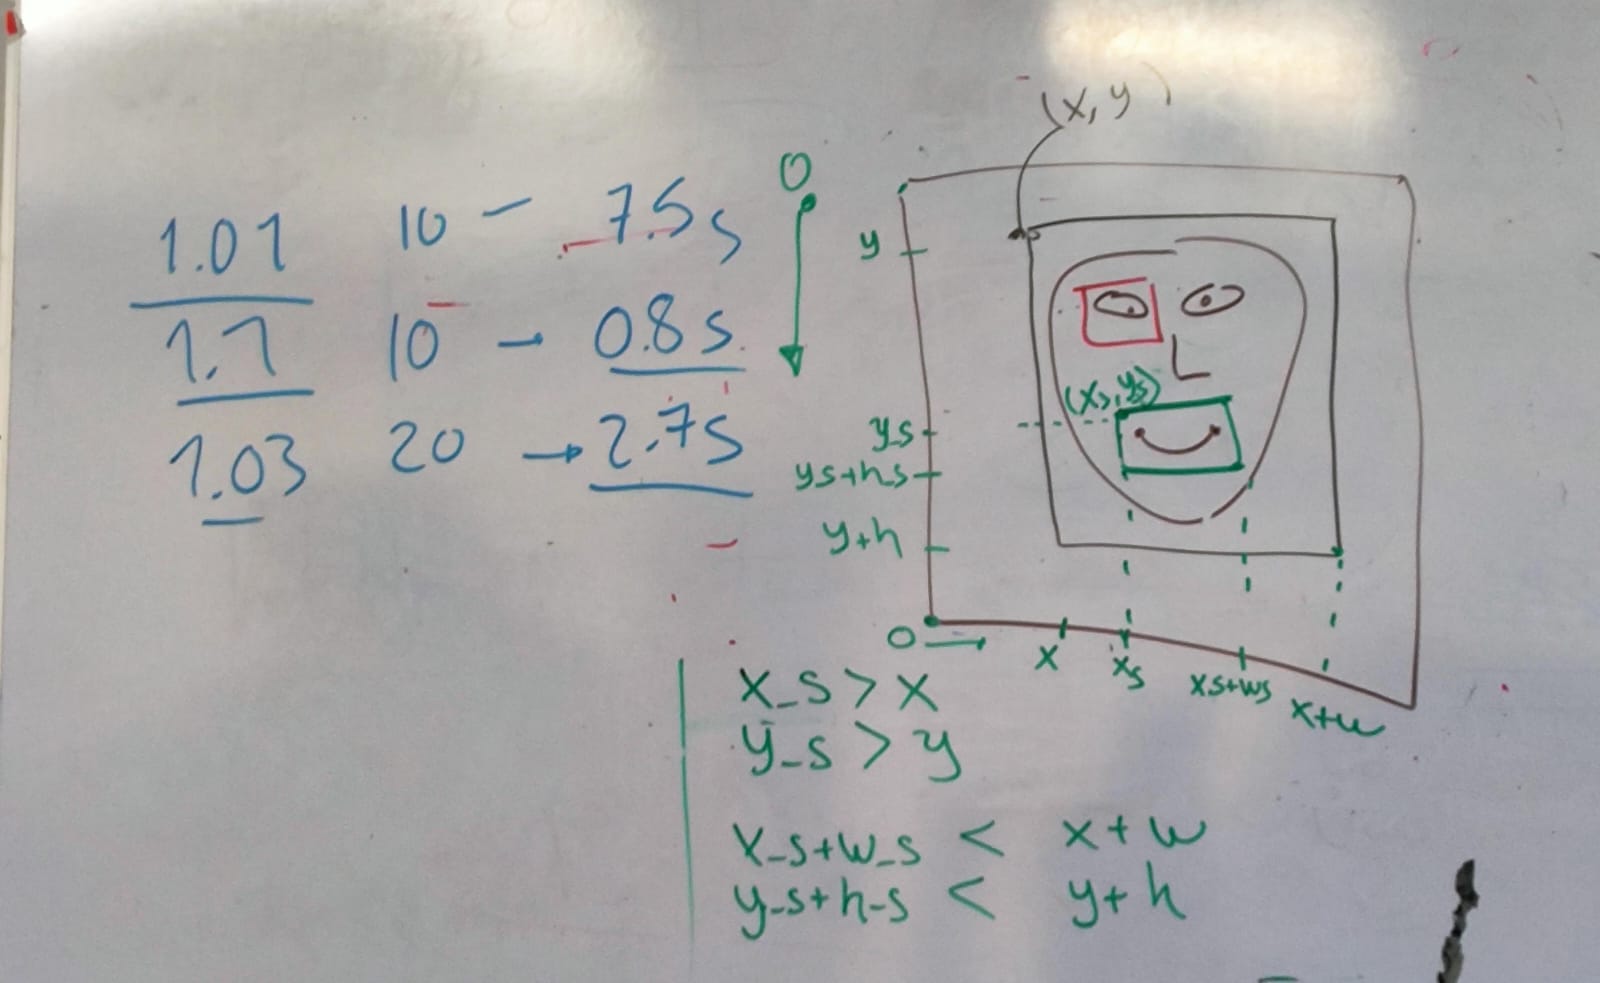 1.01 10 – 7.5s
1.1 10 → 0.8s
1.03 20 → 2.7s
(x, y)
0
y
(xs, ys)
y_s
ys+h_s
y+h
0 →
x xs xs+ws x+w
x_s > x
y_s > y
x_s+w_s < x+w
y_s+h_s < y+h